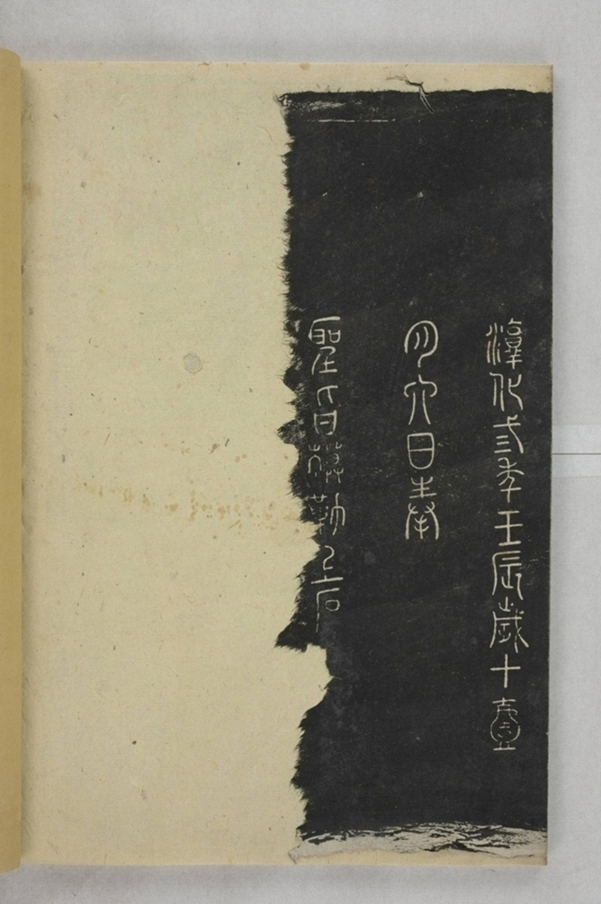 淳化三年壬辰歲十壹
月六日奉
聖旨摸勒上石